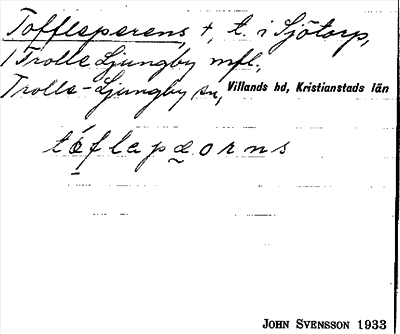 Toffleperens, +, t. i Sjötorp,
1 Trolle Ljungby mfl.,
Trolle-Ljungby sn, Villands hd, Kristianstads län
tóflapæorns
JOHN SVENSSON 1933